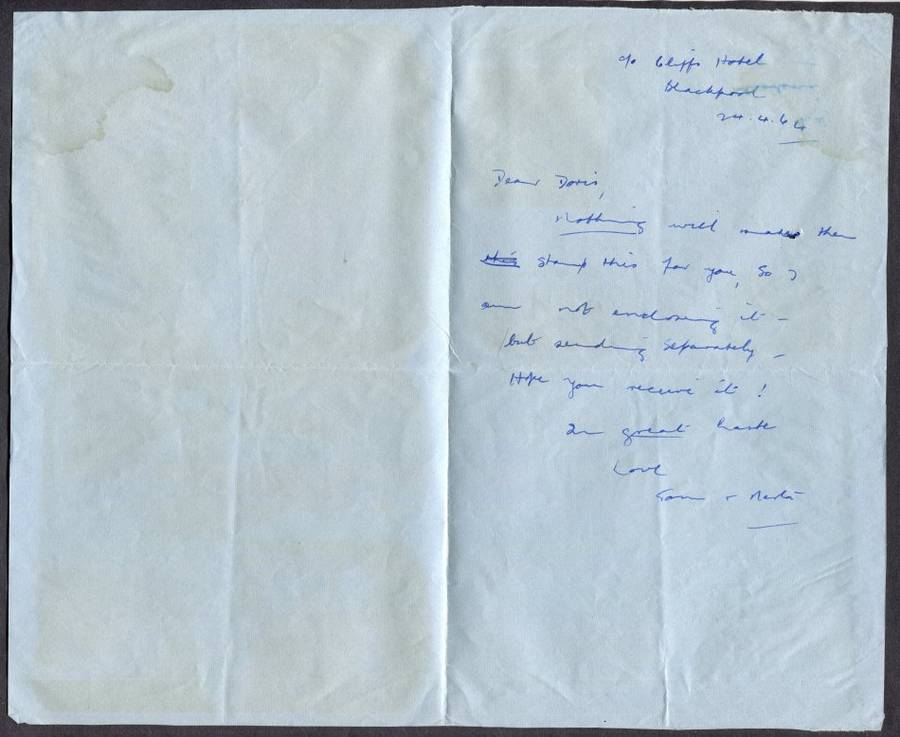 c/o Cliffs Hotel
Blackpool
24.4.64
Dear Doris,
Nothing will make them
this stamp this for you, so I
am not enclosing it –
but sending separately –
Hope you receive it!
In great haste
Love
&